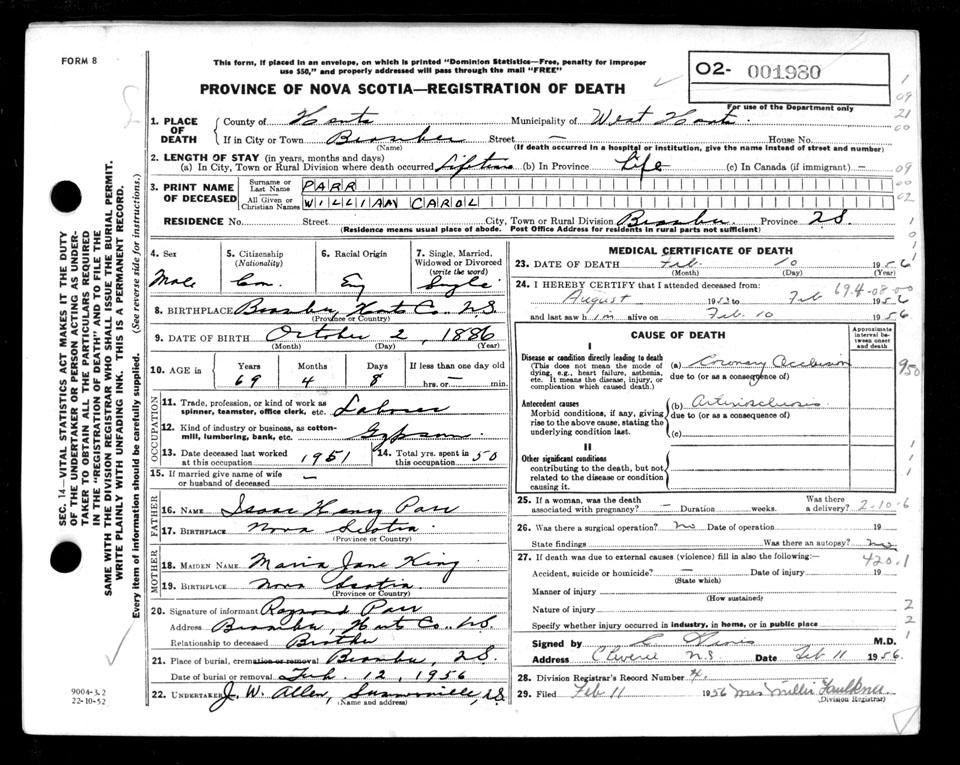 FORM 8
This form, if placed in an envelope, on which is printed "Dominion Statistics—Free, penalty for improper
use $50," and properly addressed will pass through the mail "FREE"
O2- 001980
For use of the Department only
PROVINCE OF NOVA SCOTIA—REGISTRATION OF DEATH
1. PLACE OF DEATH
County of Hants Municipality of West Hants.
If in City or Town Bramber Street — House No.
(Name) (If death occurred in a hospital or institution, give the name instead of street and number)
2. LENGTH OF STAY (in years, months and days)
(a) In City, Town or Rural Division where death occurred Lifetime (b) In Province Life (c) In Canada (if immigrant) —
3. PRINT NAME OF DECEASED
Surname or Last Name PARR
All Given or Christian Names WILLIAM CAROL
RESIDENCE No. Street City, Town or Rural Division Bramber Province N.S
(Residence means usual place of abode. Post Office Address for residents in rural parts not sufficient)
4. Sex
Male
5. Citizenship
(Nationality)
Can.
6. Racial Origin
Eng
7. Single, Married,
Widowed or Divorced
(write the word)
Single
8. BIRTHPLACE Bramber, Hants Co., N.S.
(Province or Country)
9. DATE OF BIRTH October 2, 1886
(Month) (Day) (Year)
10. AGE in
Years Months Days If less than one day old
69 4 8 hrs. or — min.
OCCUPATION
11. Trade, profession, or kind of work as
spinner, teamster, office clerk, etc. Laborer
12. Kind of industry or business, as cotton-
mill, lumbering, bank, etc. Gypsum
13. Date deceased last worked
at this occupation 1951
14. Total yrs. spent in
this occupation 50
15. If married give name of wife
or husband of deceased —
FATHER
16. Name Isaac Henry Parr
17. Birthplace Nova Scotia
(Province or Country)
MOTHER
18. Maiden Name Maria Jane King
19. Birthplace Nova Scotia
(Province or Country)
20. Signature of informant Raymond Parr
Address Bramber, Hants Co., N.S.
Relationship to deceased Brother
21. Place of burial, cremation or removal Bramber, N.S.
Date of burial or removal Feb. 12, 1956
22. Undertaker J. W. Allen, Summerville, N.S.
(Name and address)
MEDICAL CERTIFICATE OF DEATH
23. DATE OF DEATH Feb. 10 1956
(Month) (Day) (Year)
24. I HEREBY CERTIFY that I attended deceased from:
69.4-08-00
August to Feb 1956
and last saw him alive on Feb. 10 1956
CAUSE OF DEATH
Approximate interval between onset and death
I
Disease or condition directly leading to death
(This does not mean the mode of
dying, e.g., heart failure, asthenia,
etc. It means the disease, injury, or
complication which caused death.)
(a) Coronary Occlusion
due to (or as a consequence of)
950
Antecedent causes
Morbid conditions, if any, giving
rise to the above cause, stating the
underlying condition last.
(b) Arteriosclerosis.
due to (or as a consequence of)
(c)
II
Other significant conditions
contributing to the death, but not
related to the disease or condition
causing it.
25. If a woman, was the death
associated with pregnancy? — Duration weeks. Was there
a delivery? 2-10-6
26. Was there a surgical operation? no Date of operation 19
State findings Was there an autopsy? no
27. If death was due to external causes (violence) fill in also the following:—
420.1
Accident, suicide or homicide? — Date of injury 19
(State which)
Manner of injury
(How sustained)
Nature of injury
Specify whether injury occurred in industry, in home, or in public place
Signed by M.D.
Address N S Date Feb 11 1956.
28. Division Registrar's Record Number 4.
29. Filed Feb 11 1956 Mrs Millie Faulkner
(Division Registrar)
SEC. 14—VITAL STATISTICS ACT MAKES IT THE DUTY
OF THE UNDERTAKER OR PERSON ACTING AS UNDER-
TAKER TO OBTAIN ALL THE PARTICULARS REQUIRED
IN THE "REGISTRATION OF DEATH" AND TO FILE THE
SAME WITH THE DIVISION REGISTRAR WHO SHALL ISSUE THE BURIAL PERMIT.
WRITE PLAINLY WITH UNFADING INK. THIS IS A PERMANENT RECORD.
Every item of information should be carefully supplied. (See reverse side for instructions.)
9004-3.2
22-10-52